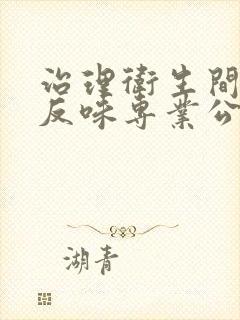 治理衛生間
反味專業公
湖青